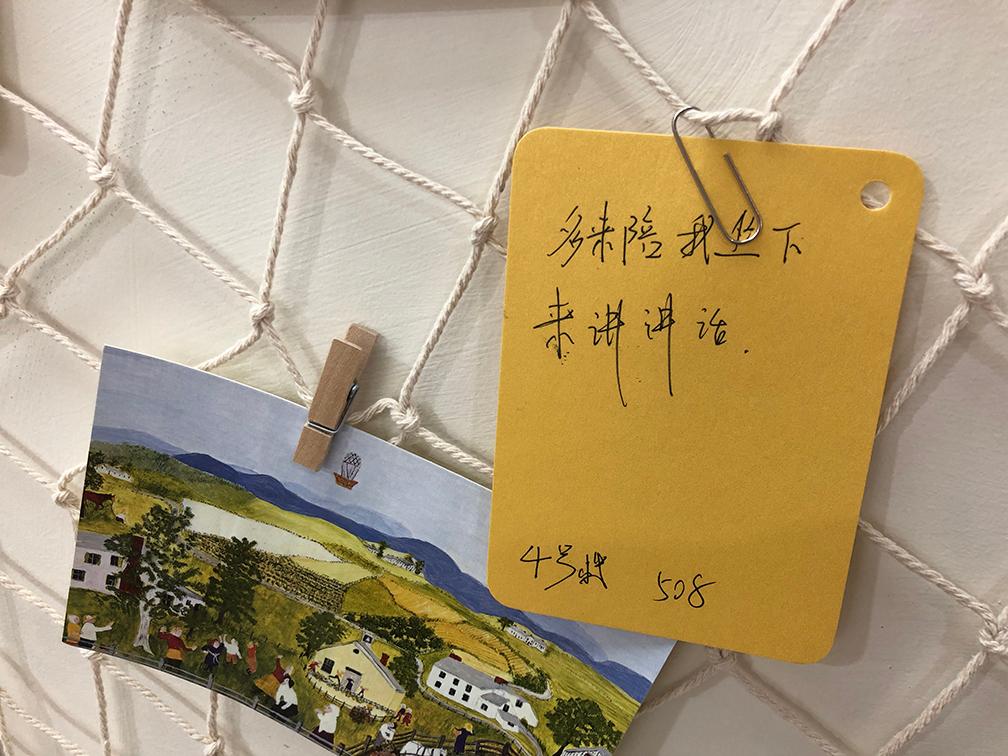 多来陪我坐下
来讲讲话.
4号楼 508